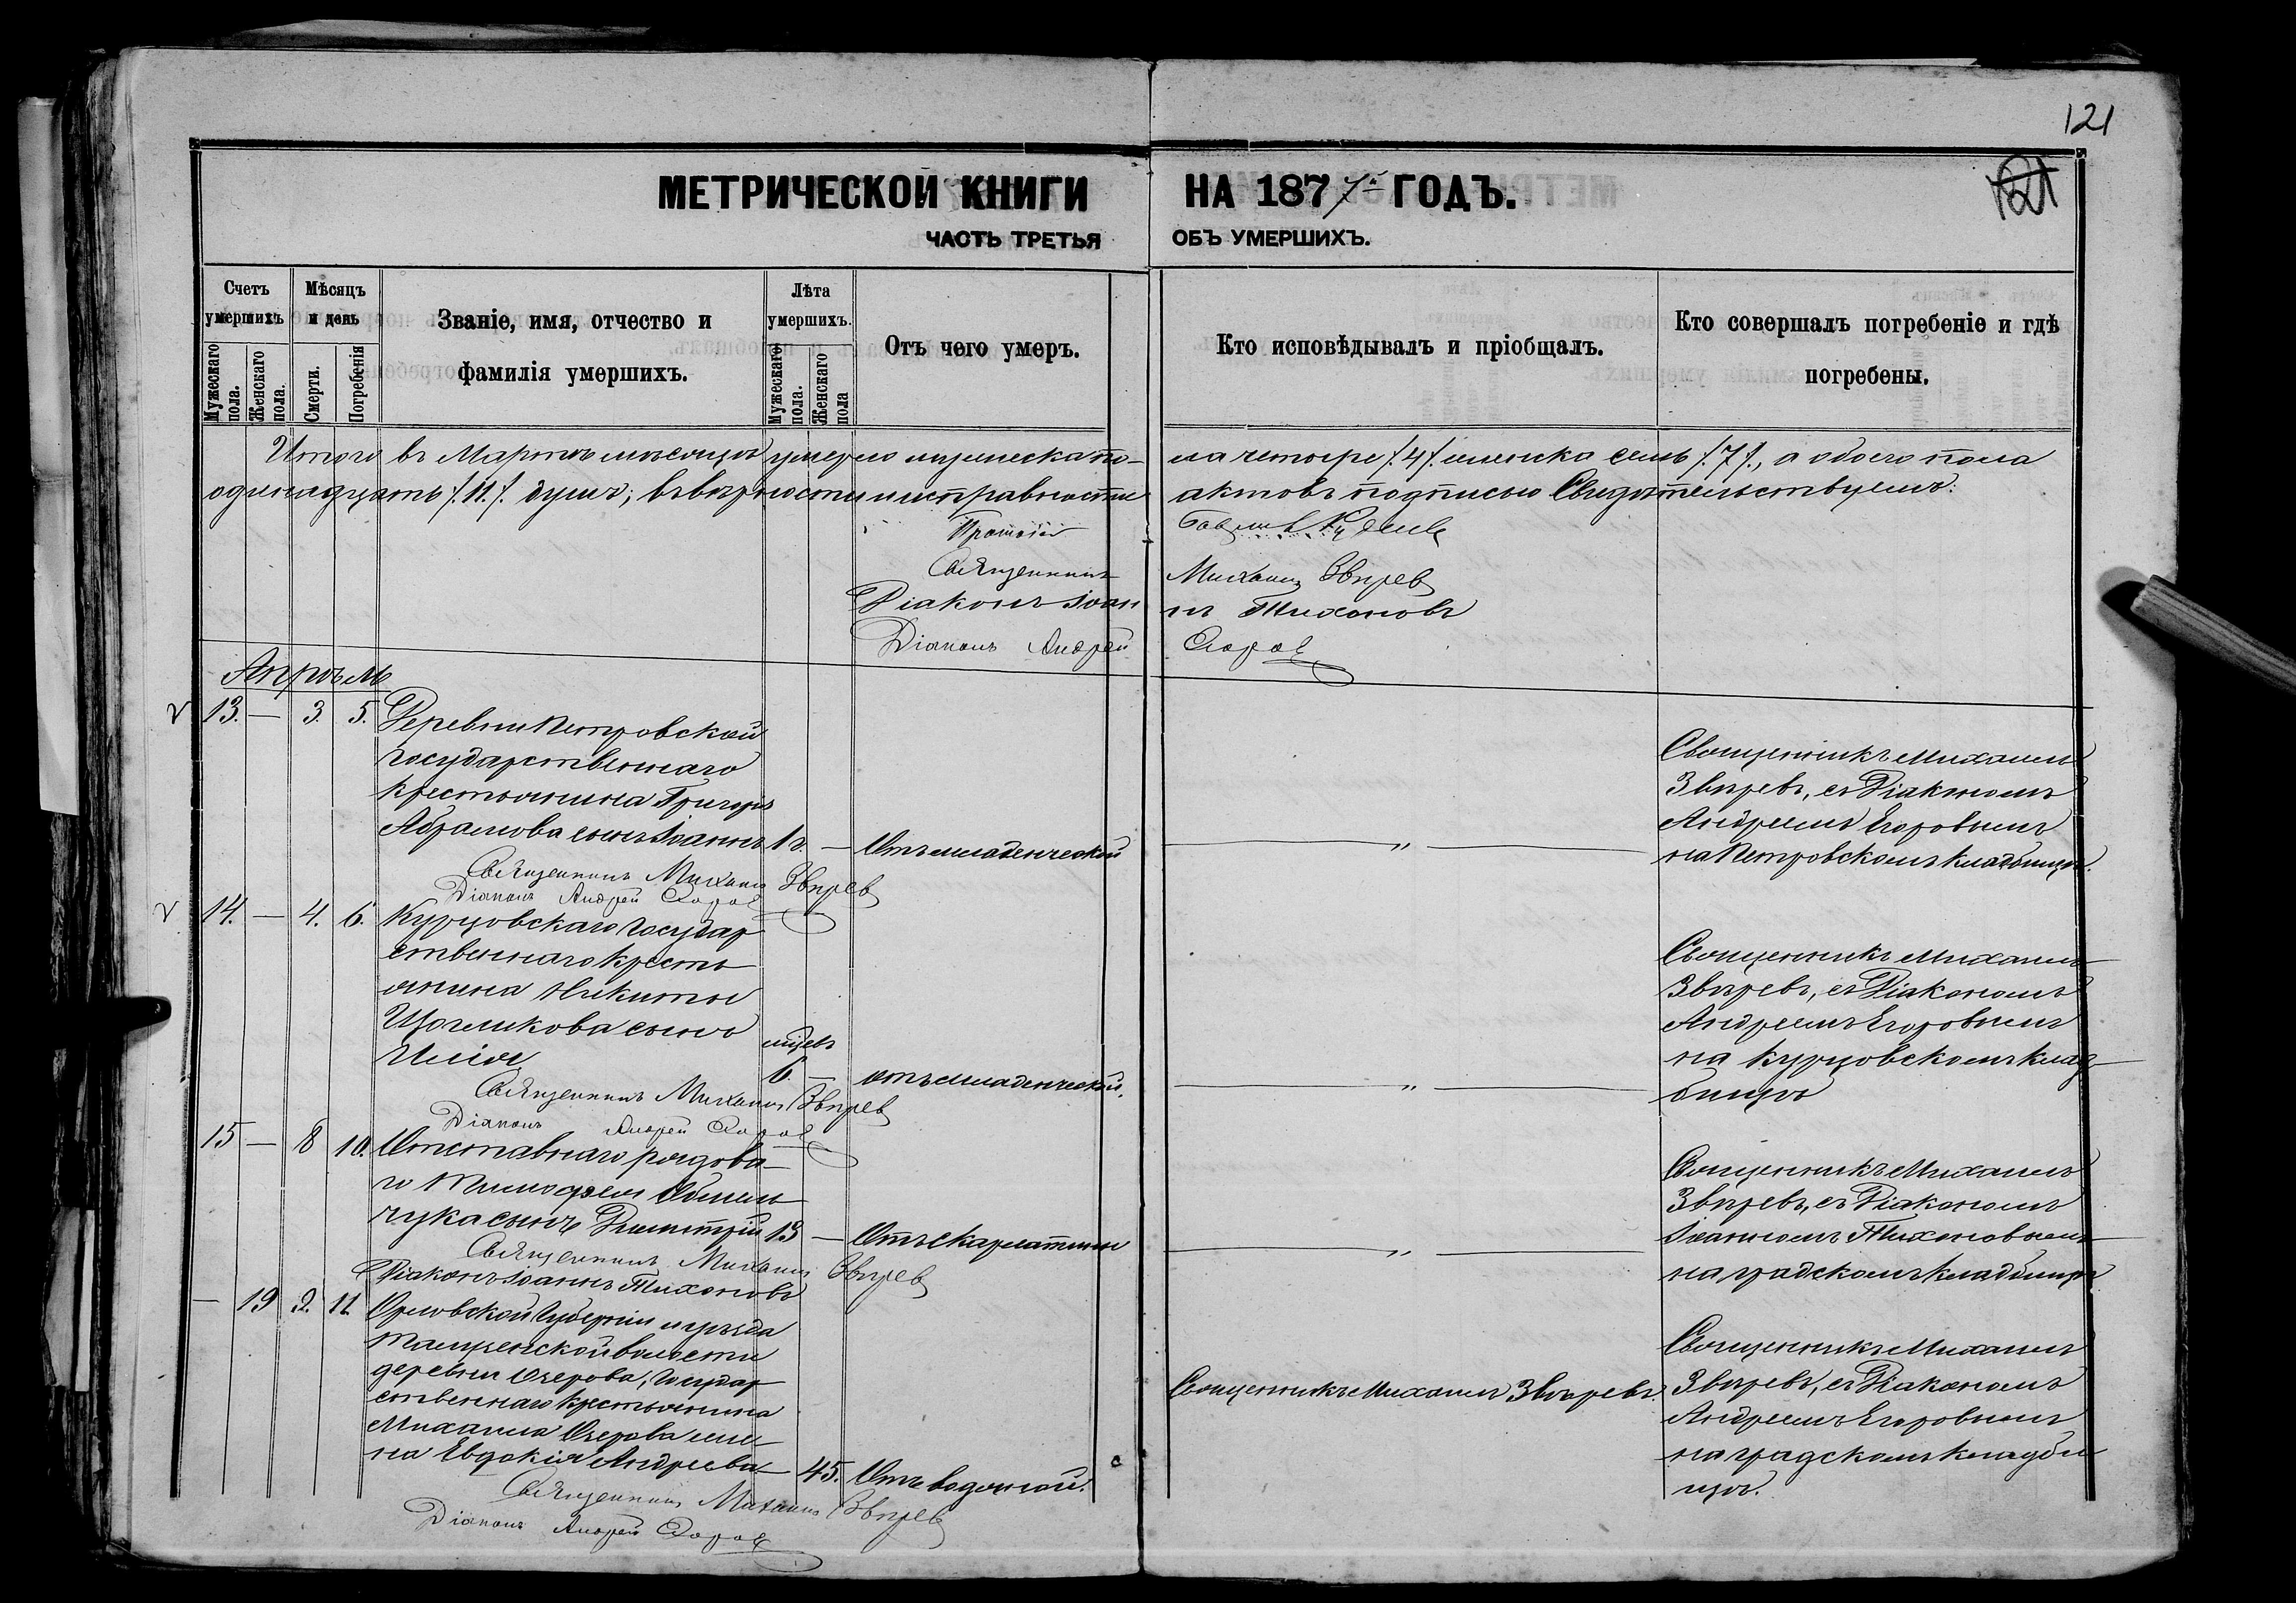 121
121
МЕТРИЧЕСКОЙ КНИГИ НА 1877й ГОДЪ.
ЧАСТЬ ТРЕТЬЯ ОБЪ УМЕРШИХЪ.
Счетъ умершихъ
Мужескаго пола.
Женскаго пола.
Мѣсяцъ и день
Смерти.
Погребенія
Званіе, имя, отчество и
фамилія умершихъ.
Лѣта умершихъ.
Мужескаго пола.
Женскаго пола
Отъ чего умеръ.
Кто исповѣдывалъ и пріобщалъ.
Кто совершалъ погребеніе и гдѣ
погребены.
Итого въ Мартѣ мѣсяцѣ умерло мужеска по-ла четыре /.4/. женска семь /.7/., а обоего пола
одинадцать /.11./. душъ; въ вѣрности и исправности актовъ подписью Свидѣтельствуемъ:
Протоіе
Священникъ Михаилъ Звѣрев
Діаконъ Іоаннъ Тихоновъ
Діаконъ Андрей
Апрѣль
13. — 3. 5. Деревни Петровской
государственнаго
крестьянина Григорія
Абрамова сынъ Іоаннъ 1 г. — Отъ младенческой
Священникъ Михаилъ Звѣрев
Діаконъ Андрей
Священникъ Михаилъ
Звѣревъ, съ Діакономъ
Андреемъ Егоровымъ
на Петровскомъ кладбищѣ.
14. — 4. 6. Курцовскаго Государ
ственнаго кресть
янина Никиты
Щегликова сынъ мѣсяц
Илія 6. — отъ младенческой.
Священникъ Михаилъ Звѣрев
Діаконъ Андрей
Священникъ Михаилъ
Звѣревъ, съ Діакономъ
Андреемъ Егоровымъ
на Курцовскомъ клад-
бищѣ
15 — 8 10. Отставнаго рядова-
го Тимофея
чука сынъ Димитрій 13 — Отъ скарлатины
Священникъ Михаилъ Звѣрев
Діаконъ Іоаннъ Тихоновъ
Священникъ Михаилъ
Звѣревъ, съ Діакономъ
Іоанномъ Тихоновымъ
на градскомъ кладбищѣ
— 19 9. 11 Орловской губерніи и уѣзда
волости
деревни Озерова, государ
ственнаго крестьянина
Михаила Озерова же-
на Евдокія Андреева — 45. Отъ водяной.
Священникъ Михаилъ Звѣрев
Діаконъ Андрей
Священникъ Михаилъ Звѣревъ.
Священникъ Михаилъ
Звѣревъ, съ Діакономъ
Андреемъ Егоровымъ
на градскомъ кладби
щѣ.